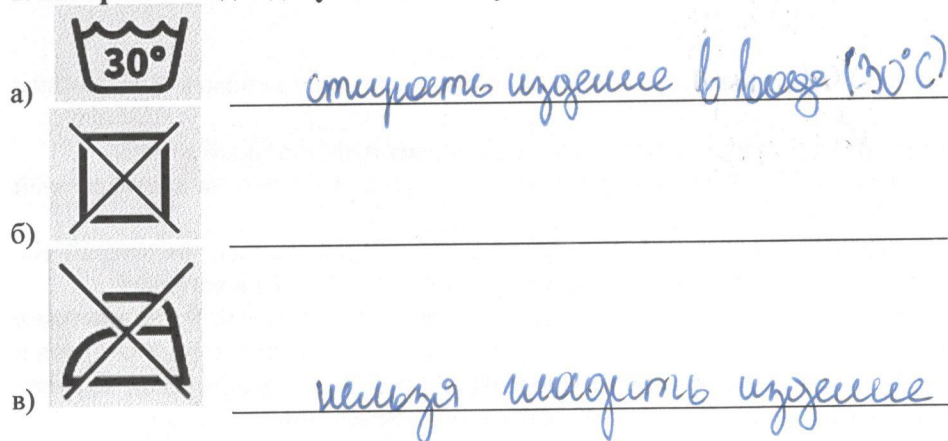 а) 30° стирать изделие в воде (30°С)
б)
в) нельзя гладить изделие